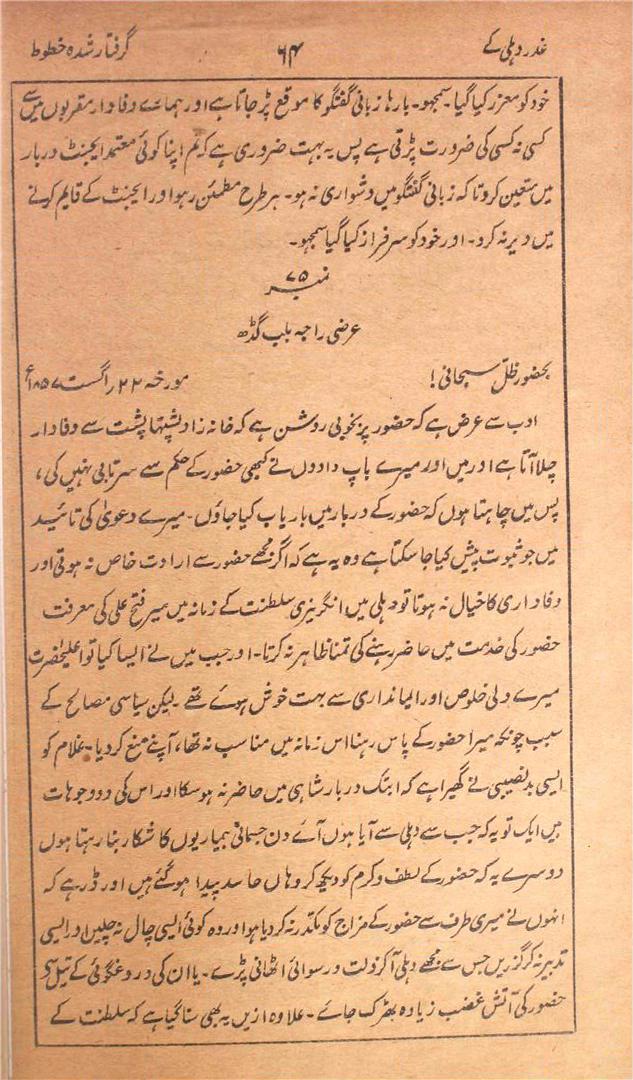 غدر دہلی کے ۶۴ گرفتار شدہ خطوط
خود کو معزز کیا گیا۔ سمجھو۔ بارہا زبانی گفتگو کا موقع پڑ جاتا ہے اور ہمارے وفادار مقربوں میں سے
کسی نہ کسی کی ضرورت پڑتی ہے پس یہ بہت ضروری ہے کہ تم اپنا کوئی معتمد ایجنٹ دربار
میں متعین کرو تاکہ زبانی گفتگو میں دشواری نہ ہو۔ ہر طرح مطمئن رہو اور ایجنٹ کے قایم کرنے
میں دیر نہ کرو۔ اور خود کو سرفراز کیا گیا سمجھو۔
نمبر ۷۵
عرضی راجہ بلب گڈھ
بحضور ظل سبحانی! مورخہ ۲۲ اگست ۱۸۵۷ء
ادب سے عرض ہے کہ حضور پر بخوبی روشن ہے کہ خانہ زاد پشتہا پشت سے وفادار
چلا آتا ہے اور میں اور میرے باپ دادوں نے کبھی حضور کے حکم سے سرتابی نہیں کی،
پس میں چاہتا ہوں کہ حضور کے دربار میں باریاب کیا جاؤں۔ میرے دعویٰ کی تائید
میں جو ثبوت پیش کیا جا سکتا ہے وہ یہ ہے کہ اگر مجھے حضور سے ارادت خاص نہ ہوتی اور
وفاداری کا خیال نہ ہوتا تو دہلی میں انگریزی سلطنت کے زمانہ میں میر فتح علی کی معرفت
حضور کی خدمت میں حاضر رہنے کی تمنا ظاہر نہ کرتا۔ اور جب میں نے ایسا کیا تو اعلیٰحضرت
میرے دلی خلوص اور ایمانداری سے بہت خوش ہوئے تھے۔ لیکن سیاسی مصالح کے
سبب چونکہ میرا حضور کے پاس رہنا اس زمانہ میں مناسب نہ تھا، آپنے منع کر دیا۔ غلام کو
ایسی بدنصیبی نے گھیرا ہے کہ ابتک دربار شاہی میں حاضر نہ ہو سکا اور اس کی دو وجوہات
ہیں ایک تو یہ کہ جب سے دہلی سے آیا ہوں آئے دن جسمانی بیماریوں کا شکار بنا رہتا ہوں
دوسرے یہ کہ حضور کے لطف و کرم کو دیکھ کر وہاں حاسد پیدا ہو گئے ہیں اور ڈر ہے کہ
انہوں نے میری طرف سے حضور کے مزاج کو مکدر نہ کر دیا ہو اور وہ کوئی ایسی چال نہ چلیں اور ایسی
تدبیر نہ کر گزریں جس سے مجھے دہلی آ کر ذلت و رسوائی اٹھانی پڑے۔ یا ان کی دروغگوئی کے تیل سے
حضور کی آتش غضب زیادہ بھڑک جائے۔ علاوہ ازیں یہ بھی سنا گیا ہے کہ سلطنت کے